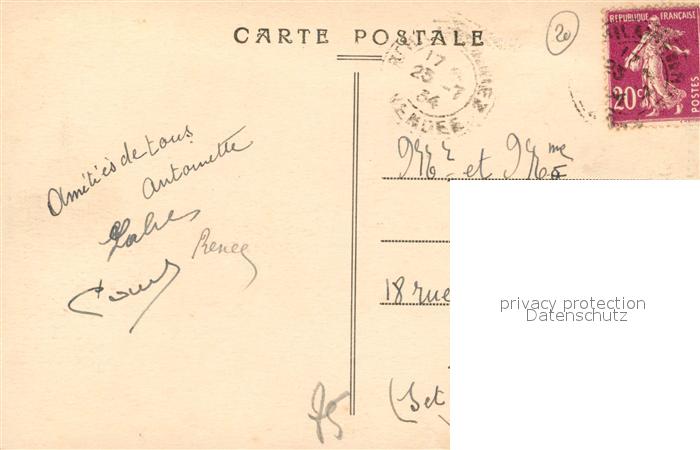 CARTE POSTALE
20
REPUBLIQUE FRANÇAISE
20c
POSTES
17
25-7
34
VENDEE
Amitiés de tous
Antoinette
Renée
Mr et Mme
18 rue
privacy protection
Datenschutz
(Set
75